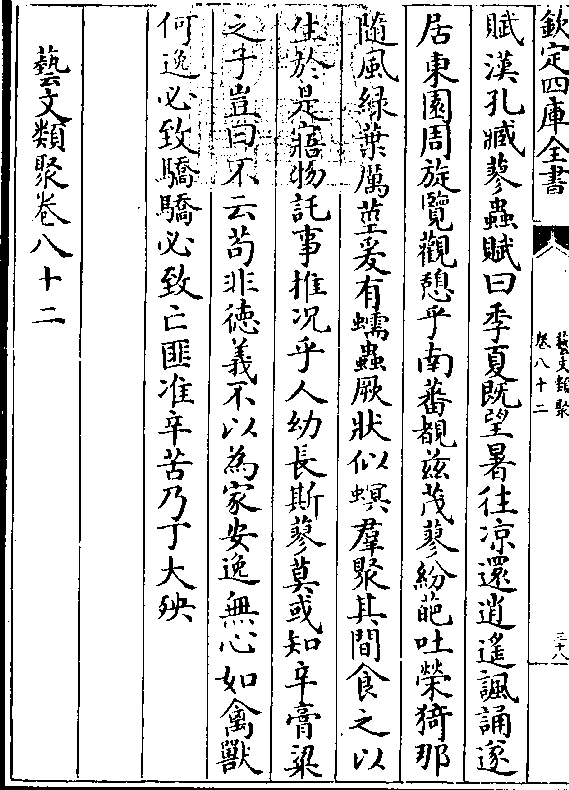 欽定四庫全書
藝文類聚
卷八十二
三十八
賦漢孔臧蓼蟲賦曰季夏既望暑往凉還逍遙諷誦遂
居東園周旋覽觀憩乎南蕃覩兹茂蓼紛葩吐榮猗那
隨風緑葉厲莖爰有蠕蟲厥狀似螟羣聚其間食之以
生於是寤物託事推况乎人幼長斯蓼莫或知辛膏粱
之子豈曰不云苟非徳義不以為家安逸無心如禽獸
何逸必致驕驕必致亡匪准辛苦乃丁大殃
藝文類聚卷八十二